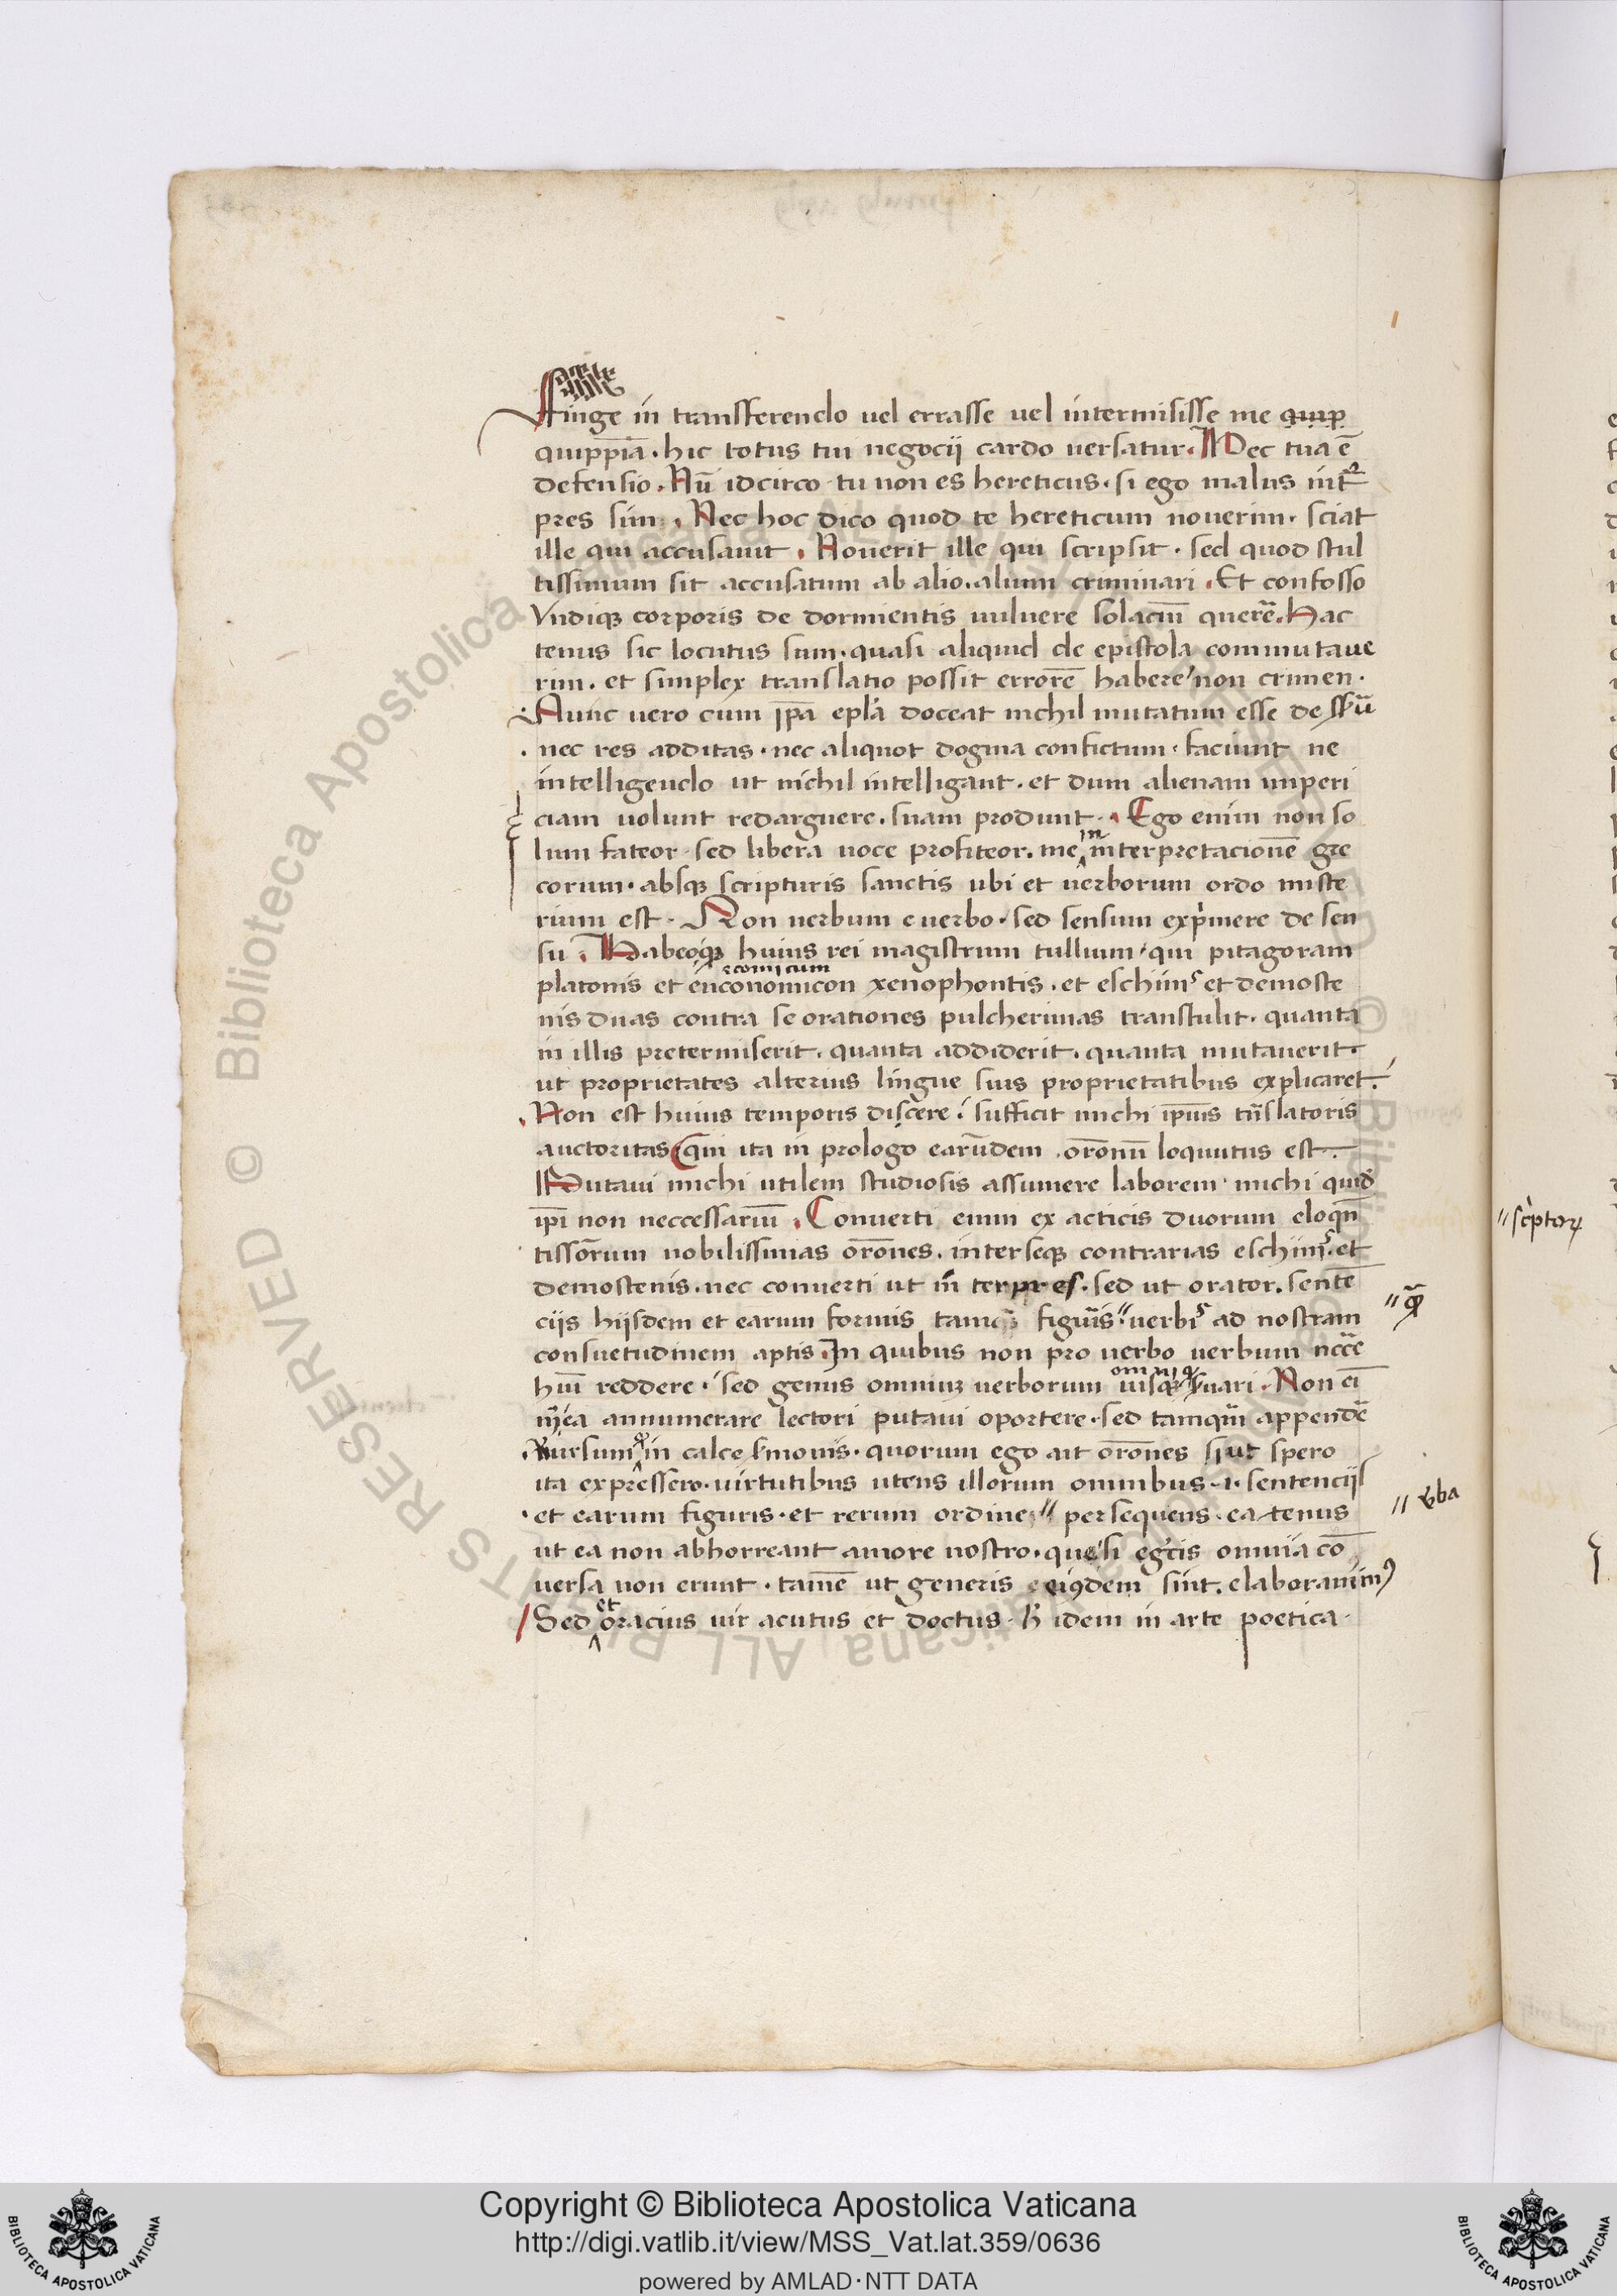 Finge in transferendo uel errasse uel intermisisse me quip
quippiā . hic totus tui negocii cardo uersatur . Nec tua ē
defensio . Nū idcirco tu non es hereticus . si ego malus int̄
pres sim . Nec hoc dico quod te hereticum nouerim . sciat
ille qui accusauit . Nouerit ille qui scripsit . sed quod stul
tissimum sit accusatum ab alio . alium criminari . Et confosso
Vndiqꝫ corporis de dormientis uulnere solaciū querē . Hac
tenus sic locutus sum . quasi aliquid de epistola commutaue
rim . et simplex translatio possit errorē habere non crimen .
Nunc uero cum ip̄a ep̄la doceat nichil mutatum esse de ssū
. nec res additas . nec aliquot dogma confictum . faciunt ne
intelligendo ut nichil intelligant . et dum alienam imperi
ciam uolunt redarguere . suam produnt . Ego enim non so
lum fateor sed libera uoce profiteor . me in interpretacionē gre
corum . absqꝫ scripturis sanctis ubi et uerborum ordo miste
rium est . Non uerbum e uerbo . sed sensum exp̄mere de sen
su . Habeoqꝫ huius rei magistrum tullium qui pitagoram
economicum
platonis et enconomicon xenophontis . et eschinis et demoste
nis duas contra se orationes pulcherimas transtulit . quanta
in illis pretermiserit . quanta addiderit . quanta mutauerit .
ut proprietates alterius lingue suis proprietatibus explicaret .
. Non est huius temporis discere . sufficit michi ip̄ius trā̄slatoris
auctoritas qui ita in prologo earūdem . orōnū loquutus est .
Putaui michi utilem studiosis assumere laborem michi quidē
ip̄i non neccessariū . Conuerti enim ex acticis duorum eloqn̄
tissorum nobilissimas orōnes . interseqꝫ contrarias eschinis et
demostenis . nec conuerti ut interpres . sed ut orator . sentē
ciis hijsdem et earum formis tamqꝫ figuris uerbis ad nostram
consuetudinem aptis . In quibus non pro uerbo uerbum nccē
hui reddere . sed genus omnium uerborum uisqꝫ s̄uari . Non ei
m̄ ea annumerare lectori putaui oportere . sed tamquā appendē
. Rursum in calce s̄monis . quorum ego ait orōnes si ut spero
ita expressero . uirtutibus utens illorum omnibus . i . sentenciis
. et earum figuris . et rerum ordine persequens . ea tenus
ut ea non abhorreant amore nostro . que si egrecis omnia cō
uersa non erunt . tamē ut generis eiusdem sint . elaborauimus
Sed et oracius uir acutus et doctus . h̄ idem in arte poetica .
sc̄ptoꝝ
uba
Copyright © Biblioteca Apostolica Vaticana
http://digi.vatlib.it/view/MSS_Vat.lat.359/0636
powered by AMLAD·NTT DATA
BIBLIOTECA APOSTOLICA VATICANA
BIBLIOTECA APOSTOLICA VATICANA
© Biblioteca Apostolica Vaticana ALL RIGHTS RESERVED